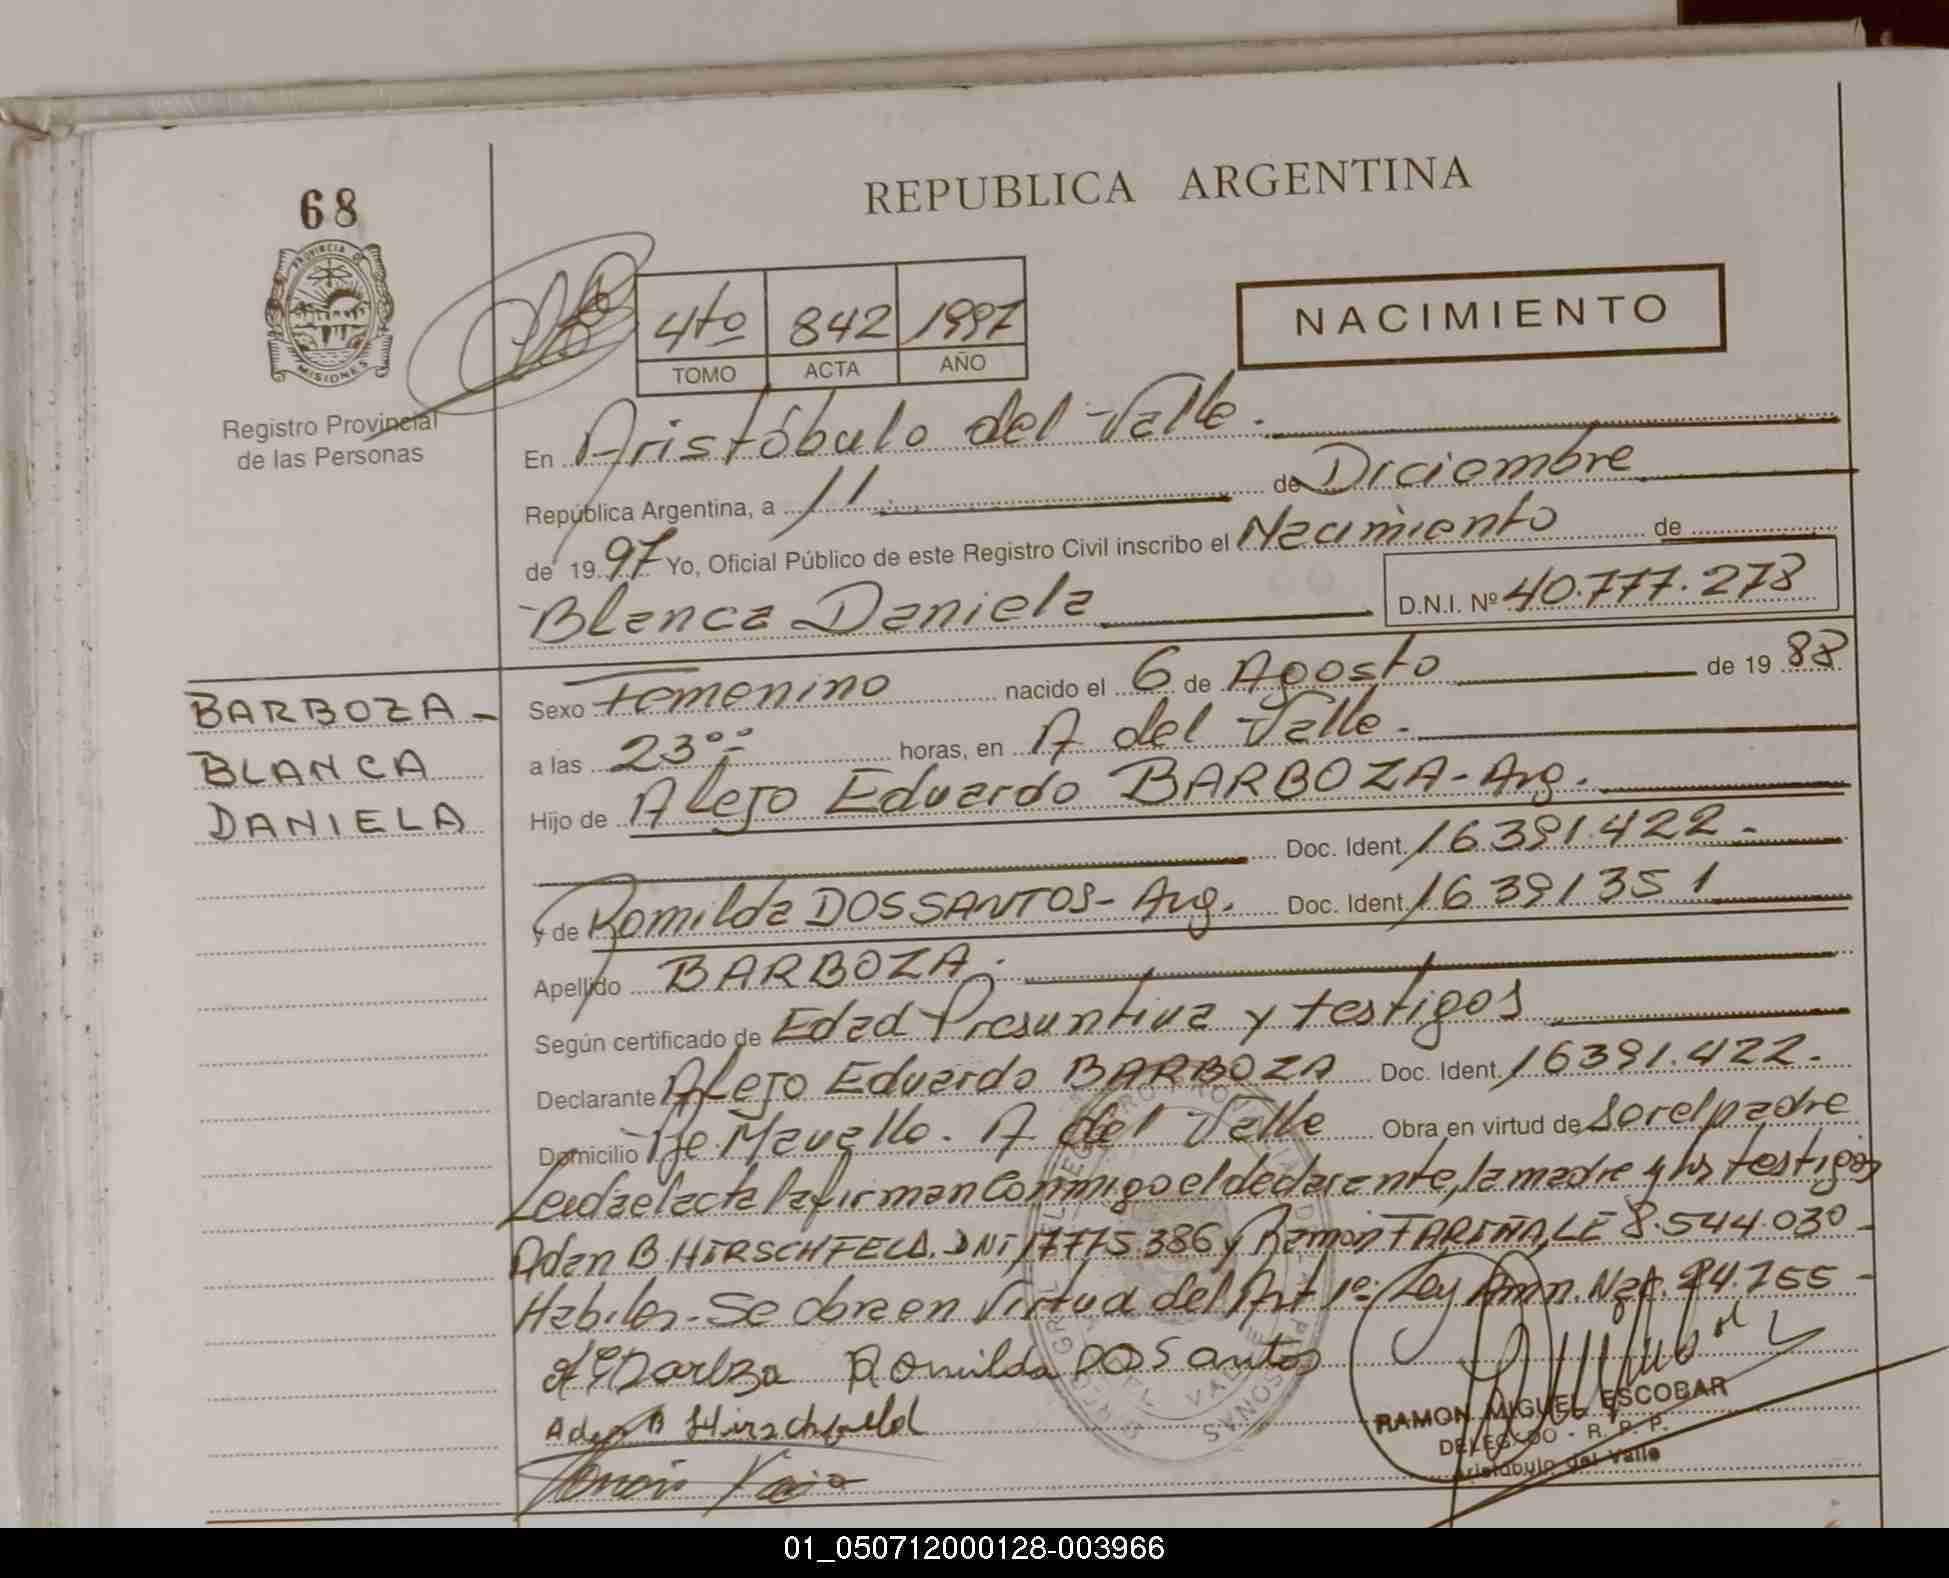 68
REPUBLICA ARGENTINA
PROVINCIA DE
MISIONES
Registro Provincial
de las Personas
4to 842 1997
TOMO ACTA AÑO
NACIMIENTO
En Aristóbulo del Valle.
República Argentina, a 11 de Diciembre
de 1997 Yo, Oficial Público de este Registro Civil inscribo el Nacimiento de
Blanca Daniela D.N.I. Nº 40.777.278
BARBOZA -
BLANCA
DANIELA
Sexo Femenino nacido el 6 de Agosto de 1988
a las 23°° horas, en A del Valle.
Hijo de Alejo Eduardo BARBOZA - Arg.
Doc. Ident. 16.391.422 -
y de Romilda DOS SANTOS - Arg. Doc. Ident. 16 391 351
Apellido BARBOZA.
Según certificado de Edad Presuntiva y testigos
Declarante Alejo Eduardo BARBOZA Doc. Ident. 16391.422 -
Domicilio A del Valle Obra en virtud de Ser el padre
Leida el acta la firman Conmigo el declarante, la madre y los testigos
Aden B. HIRSCHFELD. DNI 17775.386 y Ramón FARIÑA, LE 8.544.030 -
Habiles - Se obra en Virtud del Art 1º: Ley Amn. Nac. 24.755 -
Romilda DOS Santos
Aden B Hirschfeld
RAMON MIGUEL ESCOBAR
DELEGADO - R. P. P.
Aristóbulo del Valle
01_050712000128-003966